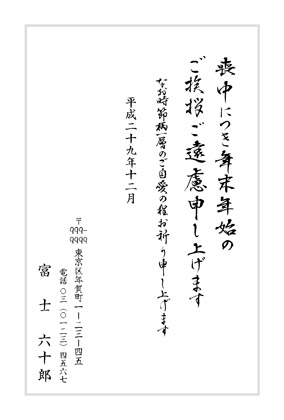 喪中につき年末年始の
ご挨拶ご遠慮申し上げます
なお時節柄一層のご自愛の程お祈り申し上げます
平成二十九年十二月
〒999-9999
東京区年賀町一ー二三ー四五
電話〇三(〇一二三)四五六七
富士 六十郎